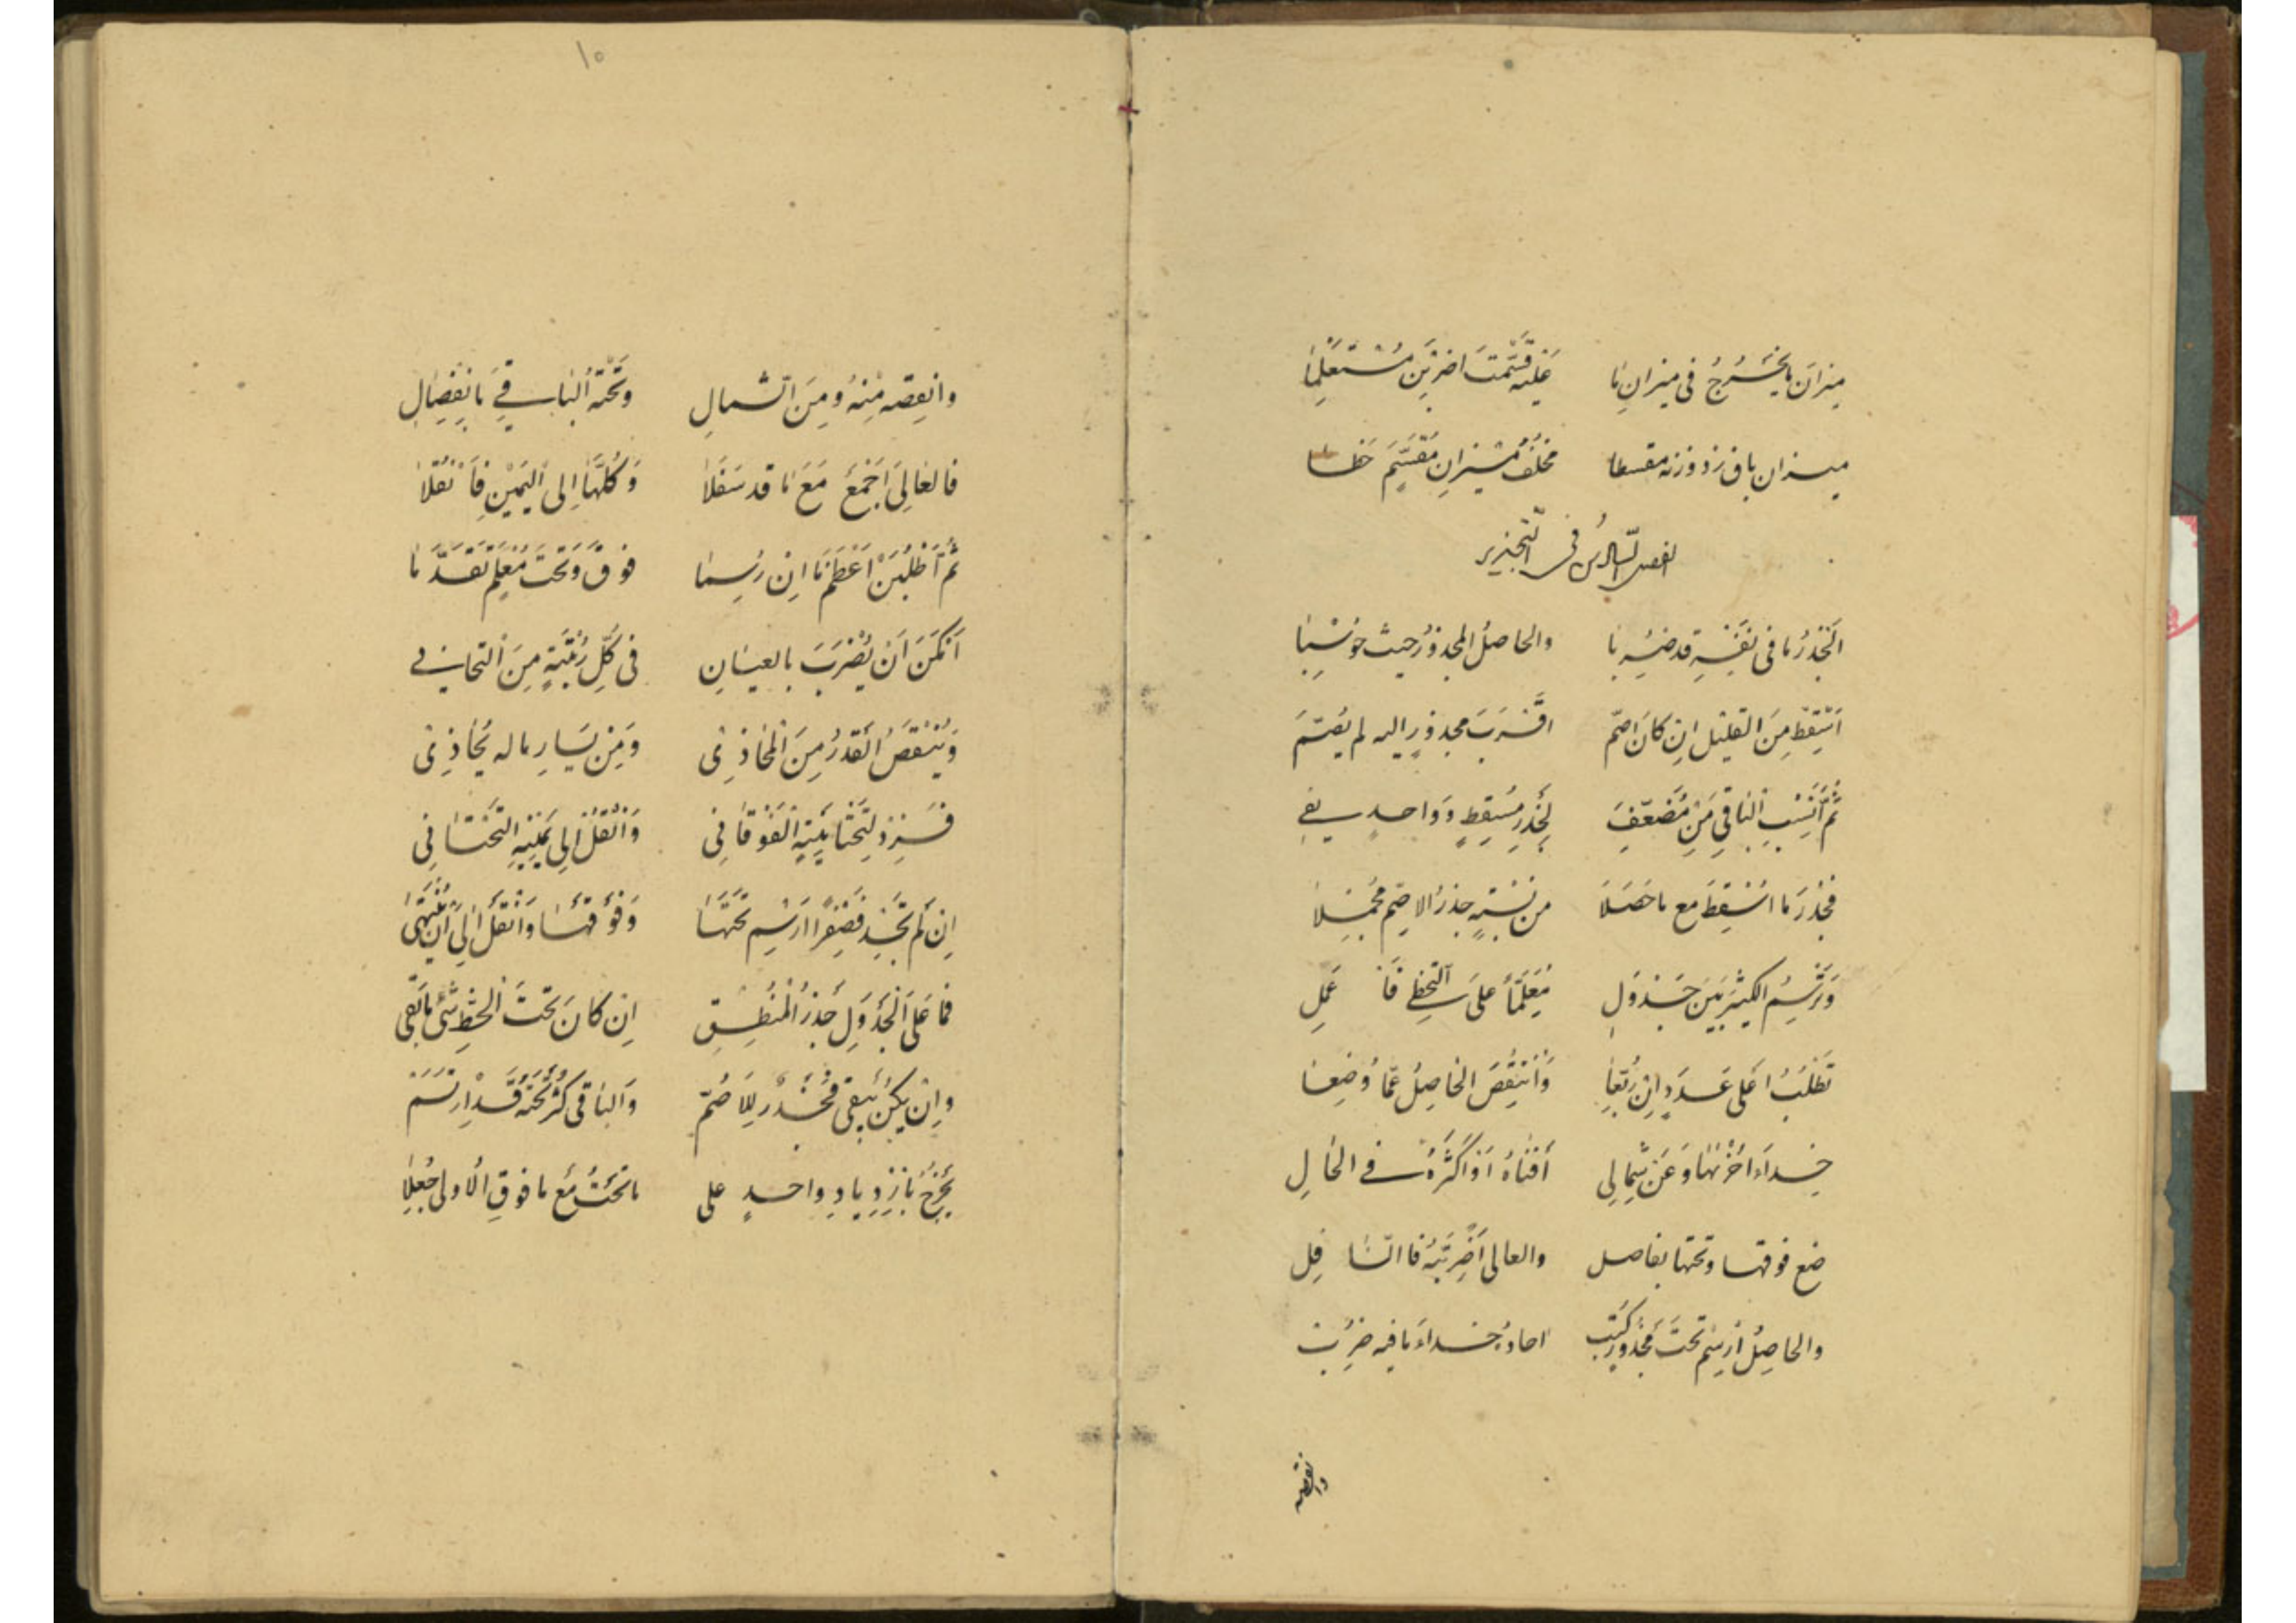 ميزانَ ما يخرُجُ في ميزانِ ما عليه قسّمتَ اضربَن مستعلِما
ميزان باق زد وزنه مقسطا مخلفُ ميزانِ مقسَّمَ خطا
الفصل السّادس في التّجذير
الجذرُ ما في نفسِهِ قد ضُرِبا والحاصلُ المجذورُ حيث حُوسِبا
اسقِط مِنَ القليل اِن كان اصمّ اقربَ مجذورٍ اليه لم يصمّ
ثمّ انسُبِ الباقي مِن مُضعَّفِ لجذرِ مُسقِطٍ وواحدٍ يفي
فجذرُ ما اُسقِطَ مع ما حَصَلَا من نسبةٍ جذرُ الاصمّ مُجمِلا
وترسُمُ الكثيرَ بينَ جدوَلِ مُعَلِّمًا على التخطي فاعمَلِ
تطلبُ اَعلى عددٍ اِن رُبّعا واَنقِصَ الحاصلُ عمّا وُضِعا
حِذاءَ اُخرٰيها وعَن شِمالِ أفناهُ أو أكثرَهُ في الحالِ
ضع فوقها وتحتها بفاصل والعالي أضرِبَنْهُ فالسّافِل
والحاصِلُ ارسِم تحتَ مجذورٍ كُتِب احادُ حذاءَ ما فيه ضُرِب
وانقصه
١٥
وانقِصه مِنهُ ومِنَ الشمالِ وتحتَهُ الباقي بانفِصالِ
فالعالِيَ اَجمع مَعَ ما قد سَفَلا وكُلَّها اِلى اليمينِ فانقُلا
ثُمَّ اطلُبَن اَعظَمَ ما اِن رُسِما فوقَ وتحتَ مُعلَمٍ تقدّما
اَمكَنَ اَن يُضرَبَ بالعيانِ في كلِّ رُتبةٍ مِنَ التحتاني
ويُنقَصُ القدرُ مِنَ المحاذي ومِن يَسارِ ما له يُحاذي
فزِد لتحتانِيّهِ الفوقاني وانقُل اِلى يمينِهِ التحتاني
اِن لم تجِد فصِفرًا ارسِم تحتَها وفوقَها وانقُل اِلى أن يُنتهى
فما عَلى الجدوَلِ جذرُ المُنطِقِ اِن كانَ تحتَ الخطِّ شئٌ ما بَقي
واِن يكُن يَبقى فجذرٌ لِلاَصَمّ والباقي كسرٌ تحتَهُ قد ارتسَم
يخرُجُ بازدِيادِ واحدٍ على ما تحتُ مَع ما فوقِ الأولى جُعِلا